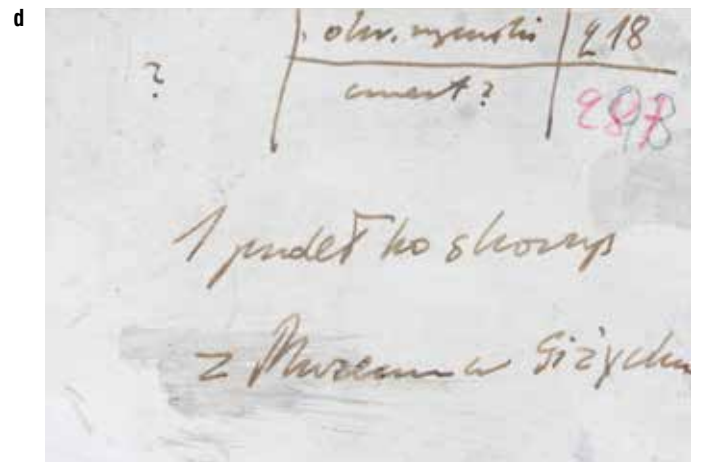 d
okr. rzymski 218
?
cment? 298
1 pudełko skorup
z Muzeum w Giżycku